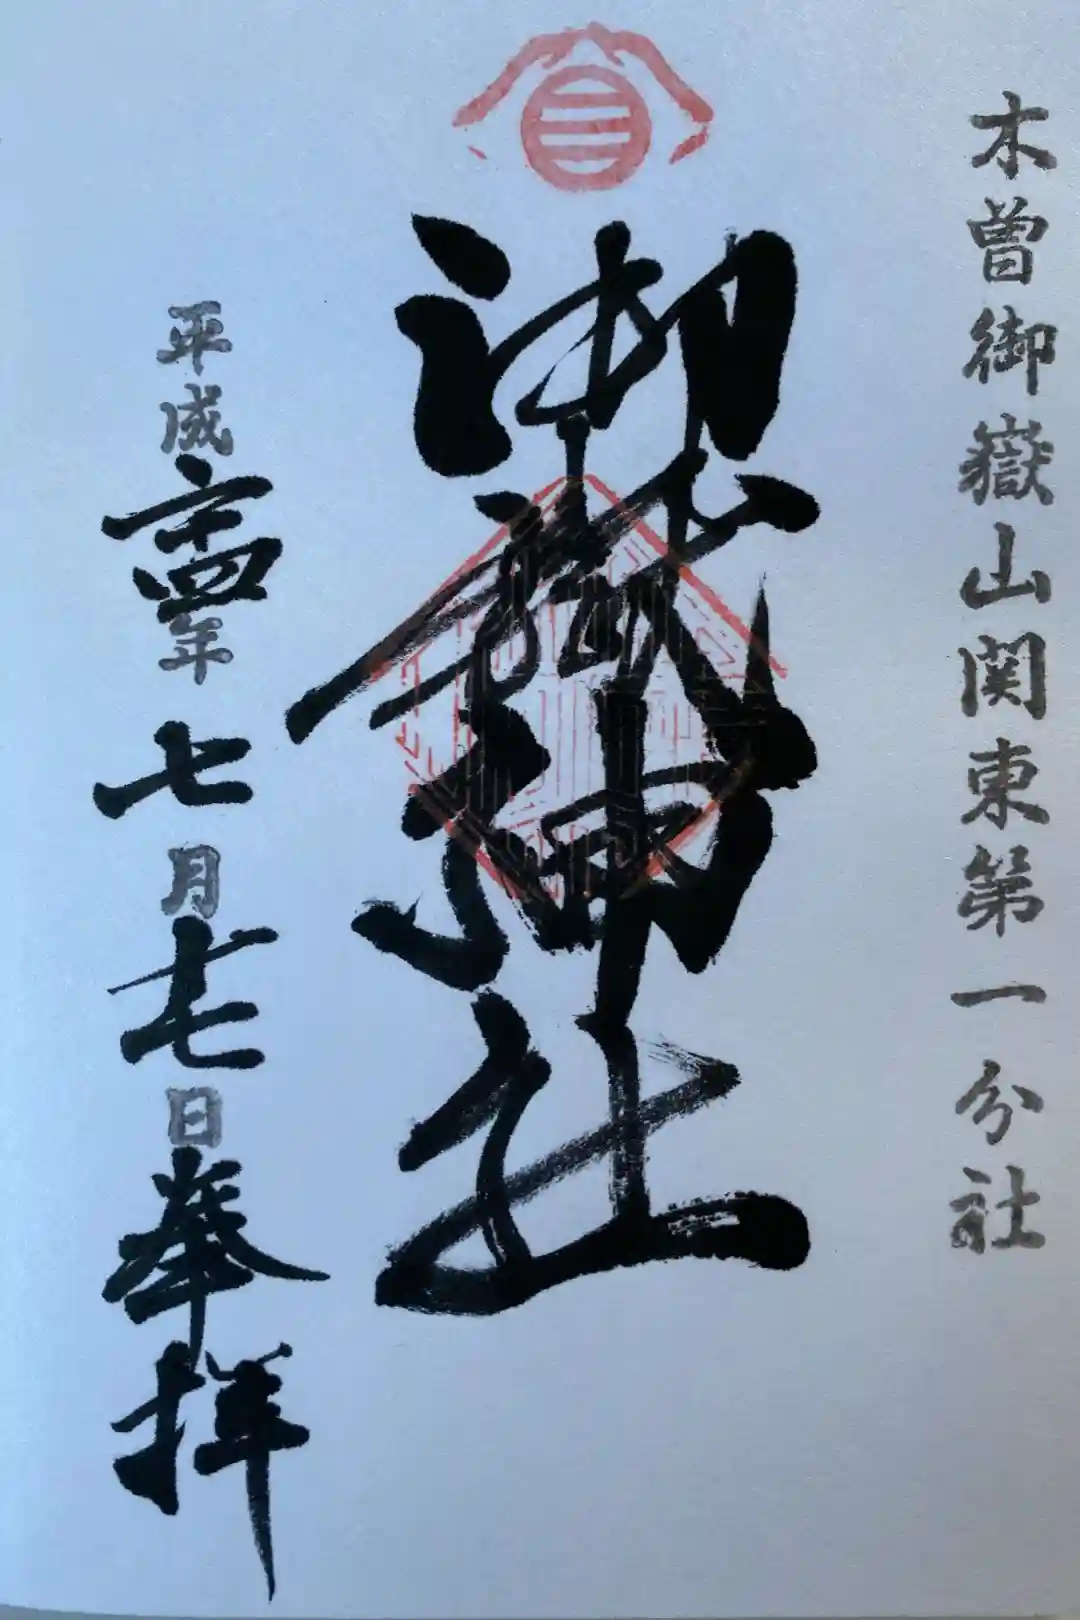 木曽御嶽山関東第一分社
御嶽神社
平成二十四年七月十七日奉拝